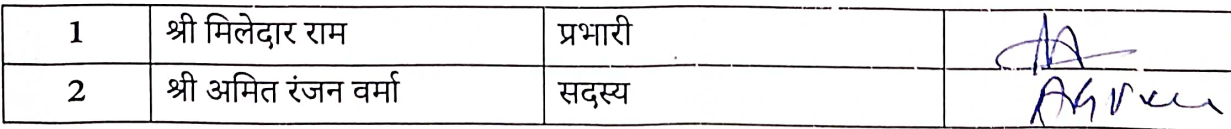 1 श्री मिलेदार राम प्रभारी
2 श्री अमित रंजन वर्मा सदस्य